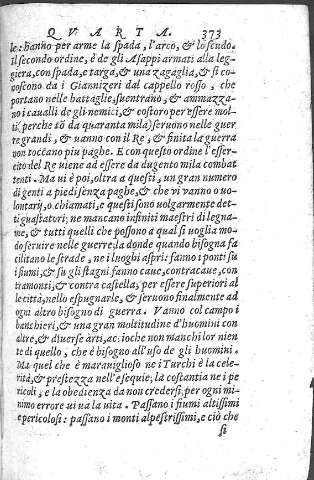 QVARTA. 373
le: hanno per arme la spada, l'arco, & lo scudo.
Il secondo ordine, è de gli Asappi armati alla leg
giera, con spada, e targa, & una zagaglia, & si co
noscono da i Giannizeri dal cappello rosso, che
portano nelle battaglie, suentrano, & ammazza
no i caualli de gli nemici, & costoro per essere mol
ti, perche sō da quaranta mila) seruono nelle guer
re grandi, & uanno con il Re, & finita la guerra
non toccano piu paghe. E con questo ordine l'esser
cito del Re uiene ad essere da dugento mila combat
tenti. Ma ui è poi, oltra a questi, un gran numero
di genti a piedi senza paghe, & che vi vanno o uo-
lontarij, o chiamati, e questi sono uolgarmente det-
ti guastatori; ne mancano infiniti maestri di legna-
me, & tutti quelli che possono a qual si uoglia mo-
do seruire nelle guerre; la donde quando bisogna fa
cilitano le strade, ne i luoghi aspri: fanno i ponti su
i fiumi, & su gli stagni fanno caue, contracaue, con
tramonti, & contra castella, per essere superiori al
le città, nello espugnarle, & seruono finalmente ad
ogni altro bisogno di guerra. Vanno col campo i
banchieri, & una gran moltitudine d'huomini con
altre, & diuerse arti, accioche non manchi lor nien
te di quello, che è bisogno all'uso de gli huomini.
Ma quel che è marauiglioso ne i Turchi è la cele-
rità, & prestezza nell'esequire; la costantia ne i pe
ricoli, e la obedienza da non credersi, per ogni mi-
nimo errore ui ua la uita. Passano i fiumi altissimi
e pericolosi: passano i monti alpestrissimi, e ciò che
si